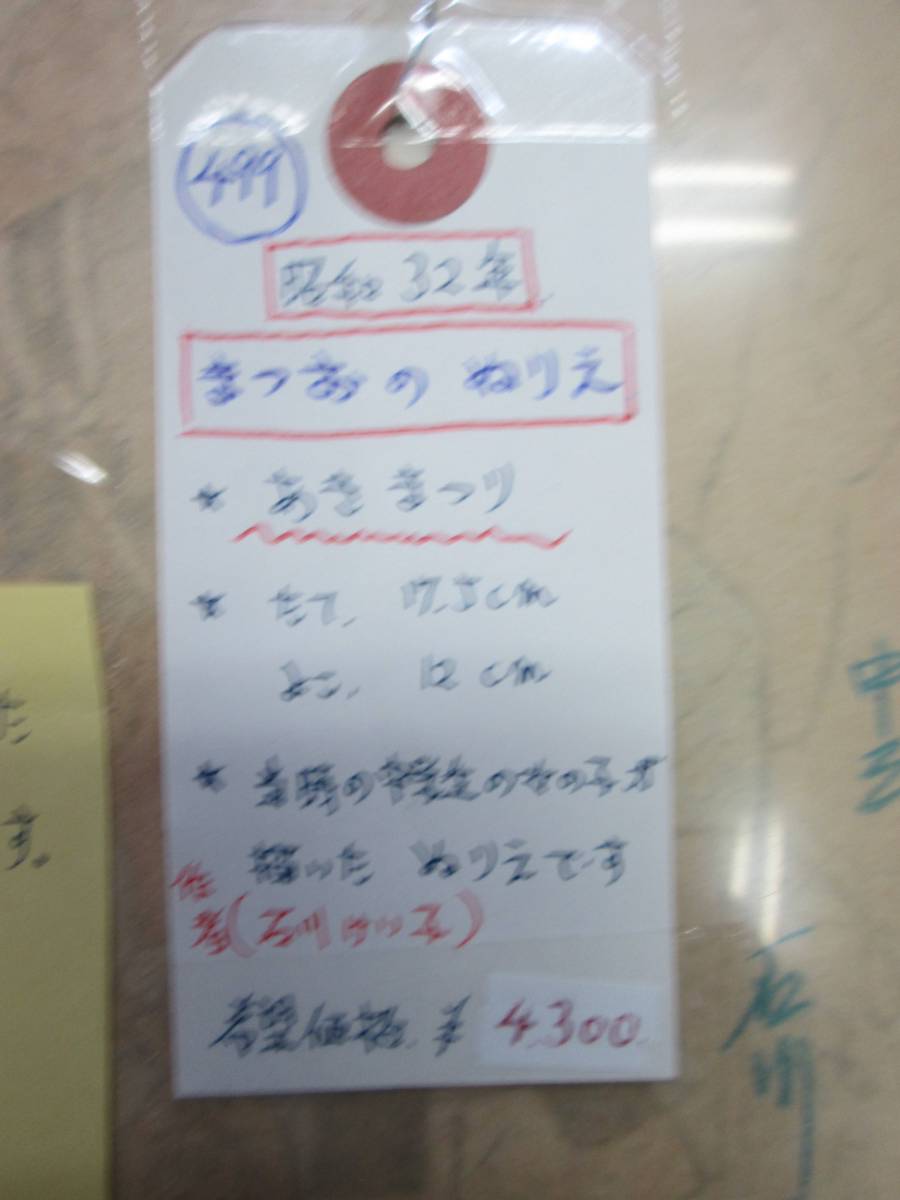 499
昭和32年
まつおのぬりえ
* あきまつり
* たて、17.5cm
よこ、12cm
* 当時の中学生の女の子が
描いた ぬりえです
作者(石川けい子)
希望価格 ¥4,300
す。
石川